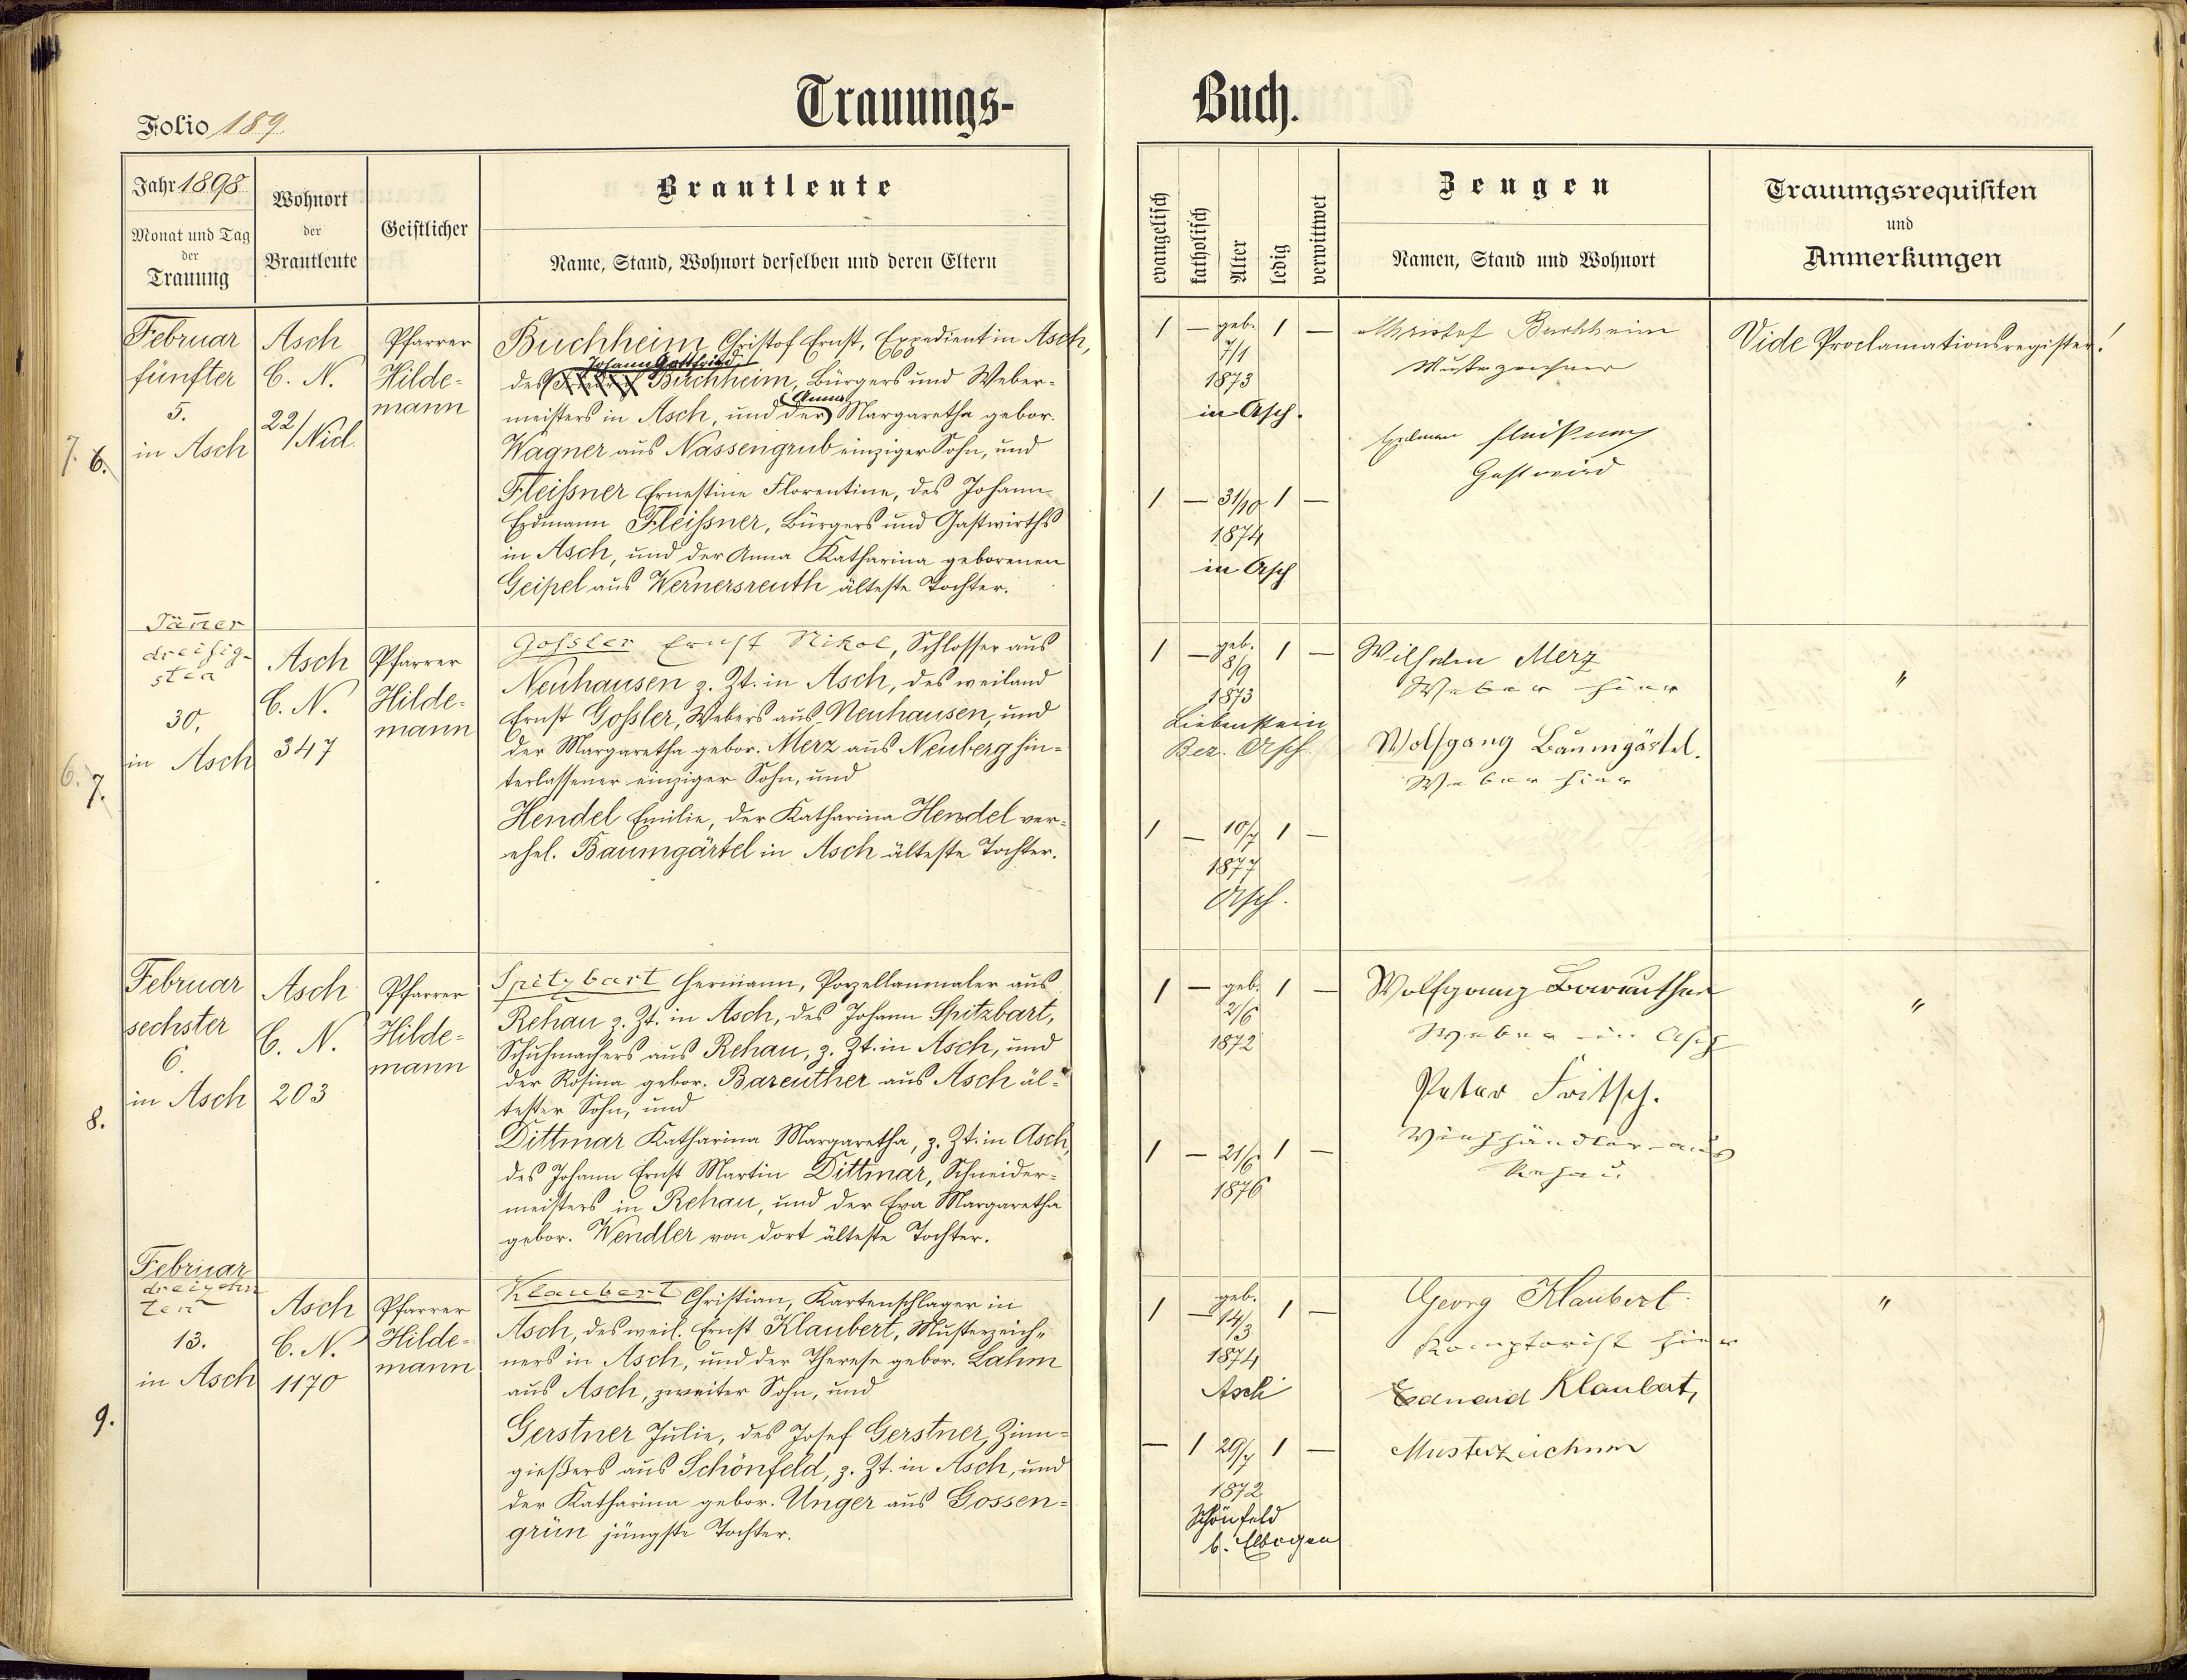 Trauungs-
Buch.
Folio 189
Jahr 1898
Monat und Tag
der
Trauung
Wohnort
der
Brautleute
Geistlicher
Brautleute
Name, Stand, Wohnort derselben und deren Eltern
evangelisch
katholisch
Alter
ledig
verwittwet
Zeugen
Namen, Stand und Wohnort
Trauungsrequisiten
und
Anmerkungen
7. 6.
Februar
fünfter
5.
in Asch
Asch
C. N.
22/Nicl.
Pfarrer
Hilde-
mann
Buchheim Christof Ernst, Expedient in Asch,
Johann Gottfried
des Buchheim, Bürgers und Weber-
Anna
meisters in Asch, und der Margaretha gebor.
Wagner aus Nassengrub einziger Sohn, und
Fleißner Ernestine Florentine, des Johann
Erdmann Fleißner, Bürgers und Gastwirths
in Asch, und der Anna Katharina geborenen
Geipel aus Wernersreuth älteste Tochter.
1 — geb. 1 —
7/1
1873
in Asch.
1 — 31/10 1 —
1874
in Asch
Christof Buchheim
Musterzeichner
Fleißner
Gastwird
Vide Proclamationsregister!
6. 7.
Jäner
dreißig-
sten
30.
in Asch
Asch
C. N.
347
Pfarrer
Hilde-
mann
Goßler Ernst Nikol, Schlosser aus
Neuhausen z. Zt. in Asch, des weiland
Ernst Goßler, Webers aus Neuhausen, und
der Margaretha gebor. Merz aus Neuberg hin-
terlassener einziger Sohn, und
Hendel Emilie, der Katharina Hendel ver-
ehel. Baumgärtel in Asch älteste Tochter.
1 — geb. 1 —
8/9
1873
Liebenstein
Bez. Asch
1 — 10/7 1 —
1877
Asch.
Wilhelm Merz
Weber hier
Wolfgang Baumgärtel.
Weber hier
"
8.
Februar
sechster
6.
in Asch
Asch
C. N.
203
Pfarrer
Hilde-
mann
Spitzbart Hermann, Porzellanmaler aus
Rehau z. Zt. in Asch, des Johann Spitzbart,
Schuhmachers aus Rehau, z. Zt. in Asch, und
der Rosina gebor. Bareuther aus Asch äl-
tester Sohn, und
Dittmar Katharina Margaretha, z. Zt. in Asch,
des Johann Ernst Martin Dittmar, Schneider-
meisters in Rehau, und der Eva Margaretha
gebor. Wendler von dort älteste Tochter.
1 — geb. 1 —
2/6
1872
1 — 21/6 1 —
1876
Wolfgang Bareuther
Weber in Asch
Peter Fritsch.
Viehhändler aus
Rehau.
"
9.
Februar
dreizehn
ten
13.
in Asch
Asch
C. N.
1170
Pfarrer
Hilde-
mann
Klaubert Christian, Kartenschlager in
Asch, des weil. Ernst Klaubert, Musterzeich-
ners in Asch, und der Therese gebor. Lahm
aus Asch, zweiter Sohn, und
Gerstner Julie, des Josef Gerstner, Zinn-
gießers aus Schönfeld, z. Zt. in Asch, und
der Katharina gebor. Unger aus Gossen-
grün jüngste Tochter.
1 — geb. 1 —
14/3
1874
Asch
— 1 29/7 1 —
1872
Schönfeld
b. Elbogen
Georg Klaubert
Komptorist hier
Eduard Klaubert,
Musterzeichner
"